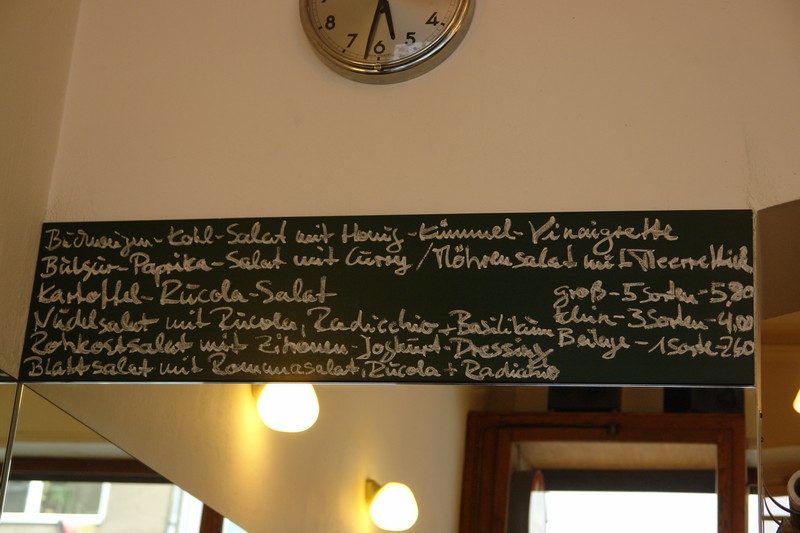 8 7 6 5 4
Buchweizen-Kohl-Salat mit Honig-Kümmel-Vinaigrette
Bulgur-Paprika-Salat mit Curry / Möhrensalat mit Meerrettich
Kartoffel-Rucola-Salat
groß-5 Sorten-5,80
Nudelsalat mit Rucola, Radicchio + Basilikum
klein-3 Sorten-4,00
Rohkostsalat mit Zitronen-Joghurt-Dressing
Beilage-1 Sorte-2,60
Blattsalat mit Rommasalat, Rucola + Radichio